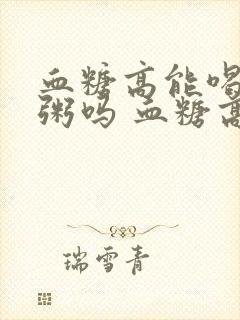 血糖高能喝
粥吗 血糖高
瑞雪青